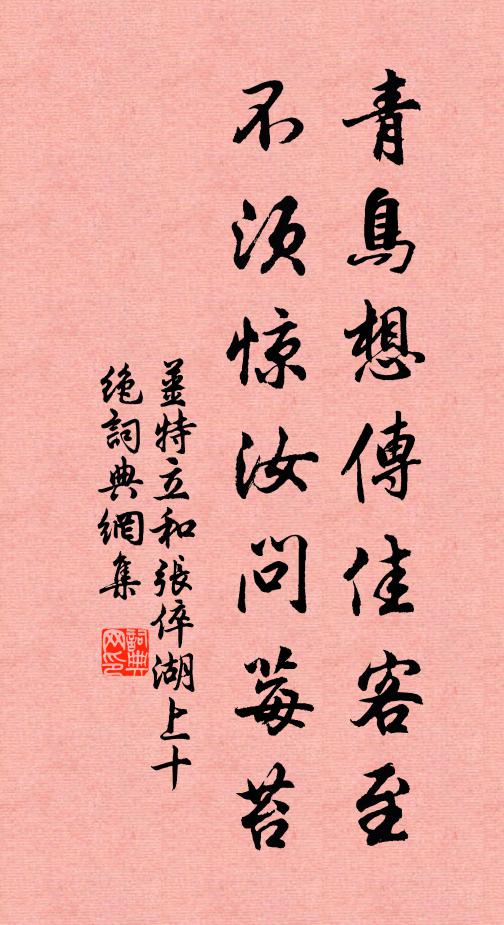 青鳥想傳佳客至
不須惊汝問莓苔
姜特立和張倅湖上十
绝詞典網集
詞典网印